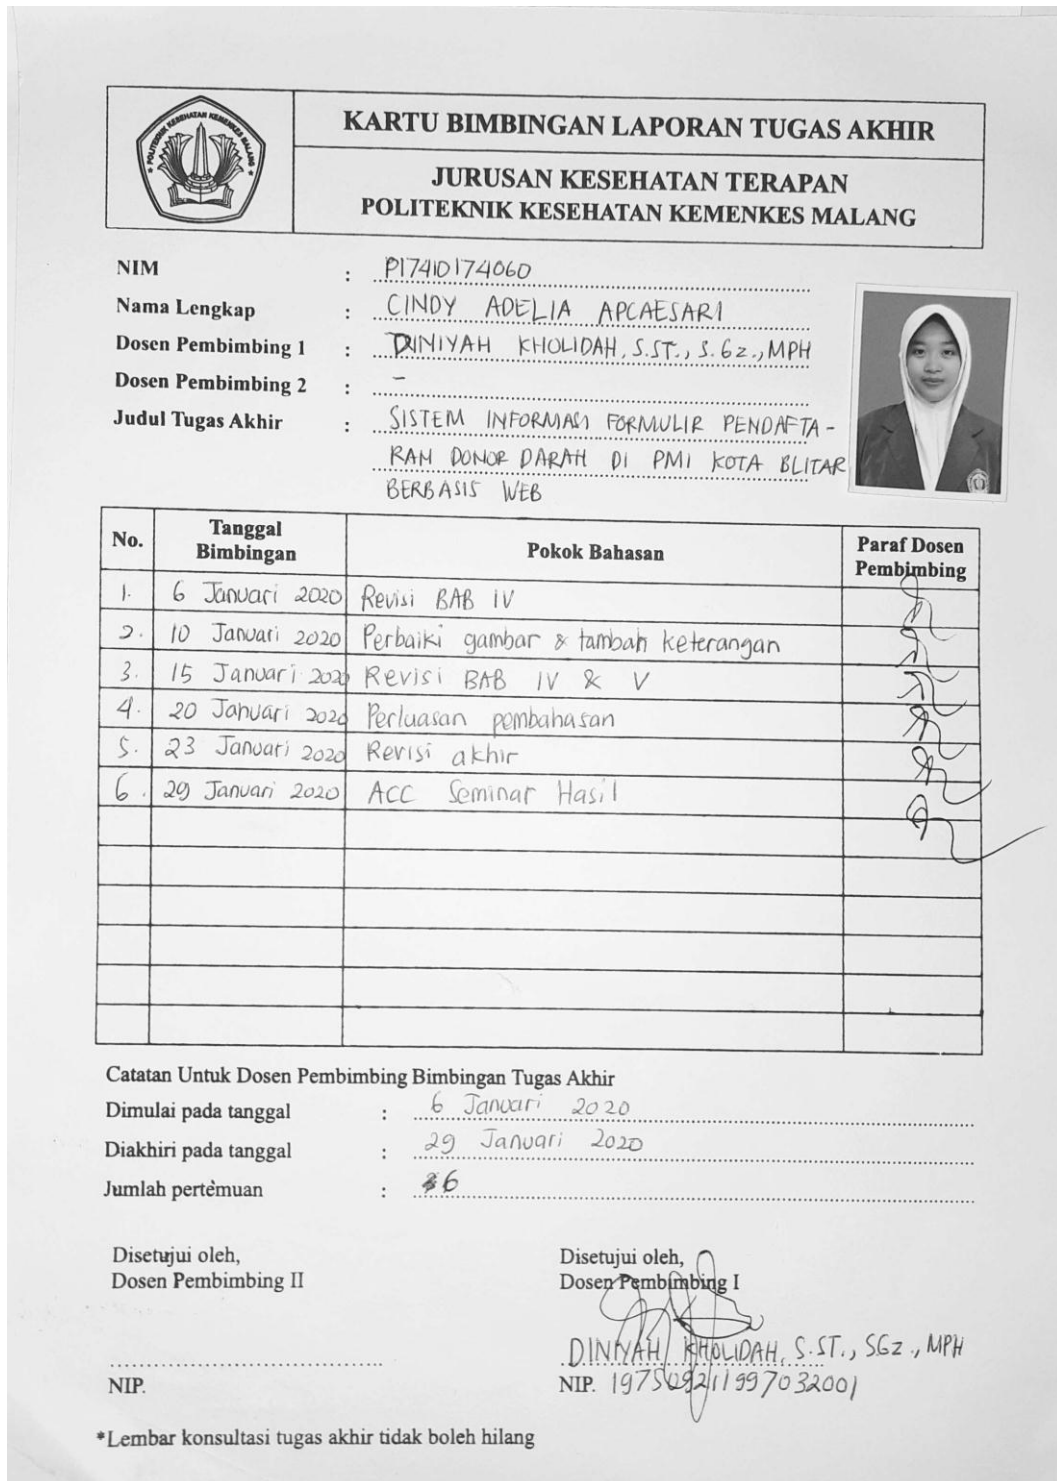 POLITEKNIK KESEHATAN KEMENKES MALANG
KARTU BIMBINGAN LAPORAN TUGAS AKHIR
JURUSAN KESEHATAN TERAPAN
POLITEKNIK KESEHATAN KEMENKES MALANG
NIM : P17410174060
Nama Lengkap : CINDY ADELIA APCAESARI
Dosen Pembimbing 1 : DINIYAH KHOLIDAH, S.ST., S.Gz., MPH
Dosen Pembimbing 2 : -
Judul Tugas Akhir : SISTEM INFORMASI FORMULIR PENDAFTA-
RAN DONOR DARAH DI PMI KOTA BLITAR
BERBASIS WEB
No. Tanggal Bimbingan Pokok Bahasan Paraf Dosen Pembimbing
1. 6 Januari 2020 Revisi BAB IV
2. 10 Januari 2020 Perbaiki gambar & tambah keterangan
3. 15 Januari 2020 Revisi BAB IV & V
4. 20 Januari 2020 Perluasan pembahasan
5. 23 Januari 2020 Revisi akhir
6. 29 Januari 2020 ACC Seminar Hasil
Catatan Untuk Dosen Pembimbing Bimbingan Tugas Akhir
Dimulai pada tanggal : 6 Januari 2020
Diakhiri pada tanggal : 29 Januari 2020
Jumlah pertemuan : 6
Disetujui oleh, Disetujui oleh,
Dosen Pembimbing II Dosen Pembimbing I
DINIYAH KHOLIDAH, S.ST., SGz., MPH
NIP. NIP. 197509211997032001
*Lembar konsultasi tugas akhir tidak boleh hilang